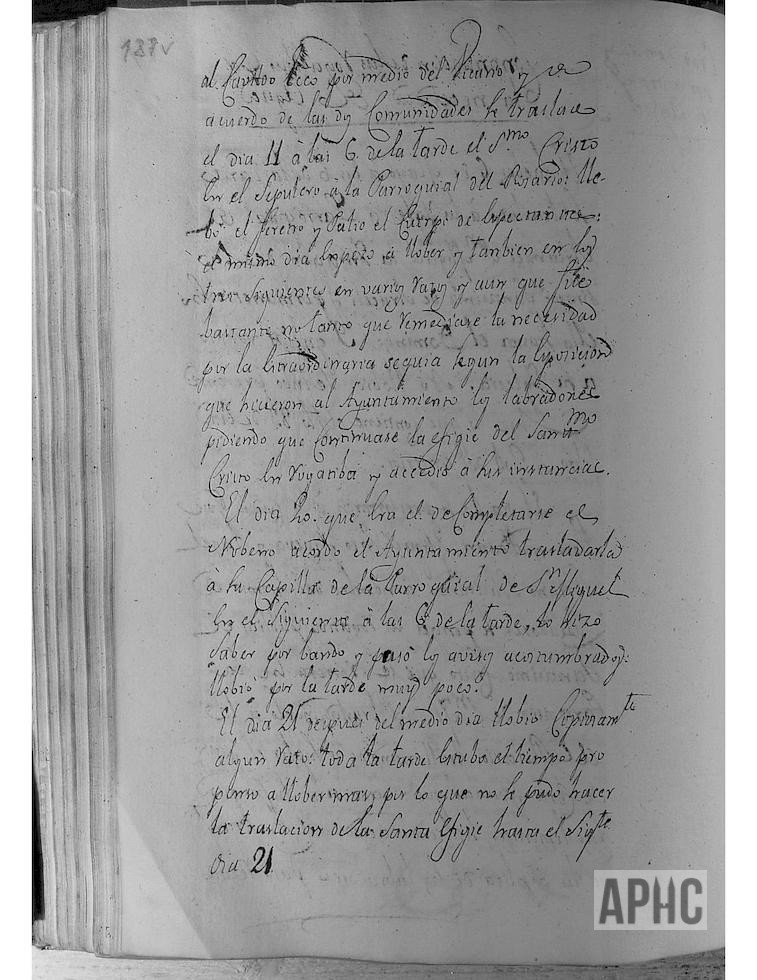 187v
al Cavildo Ecco por medio del Vicario y de
acuerdo de las dos Comunidades se traslade
el dia 11 à las 6 de la tarde el S.mo Cristo
en el Sepulcro a la Parroquial del Rosario: lle-
bó el feretro y Palio el Cuerpo de
el mismo dia Enpezó a llober y tanbien en los
tres siguientes en varios ratos y aun que fue
bastante no tanto que remediase la necesidad
por la Extraordinaria sequia segun la Esposicion
que hicieron al Ayuntamiento los labradores
pidiendo que Continuase la efigie del Sant.mo
Cristo en Rogatiba y accedió à sus instancias.
El dia 20. que Era el de Completarse el
Nobeno acordó el Ayuntamiento trasladarla
à su Capilla de la Parroquial de S.n Miguel
En el Siguiente à las 6 de la tarde, Lo hizo
Saber por bando y pasó los avisos acostumbrados:
llobió por la tarde muy poco.
El dia 21 despues del medio dia llobio Copiosam.te
algun rato: toda la tarde Estubo el tiempo pro
penso a llober mas, por lo que no se pudo hacer
la traslacion de la Santa Efigie hasta el Sig.te
dia 21
APHC